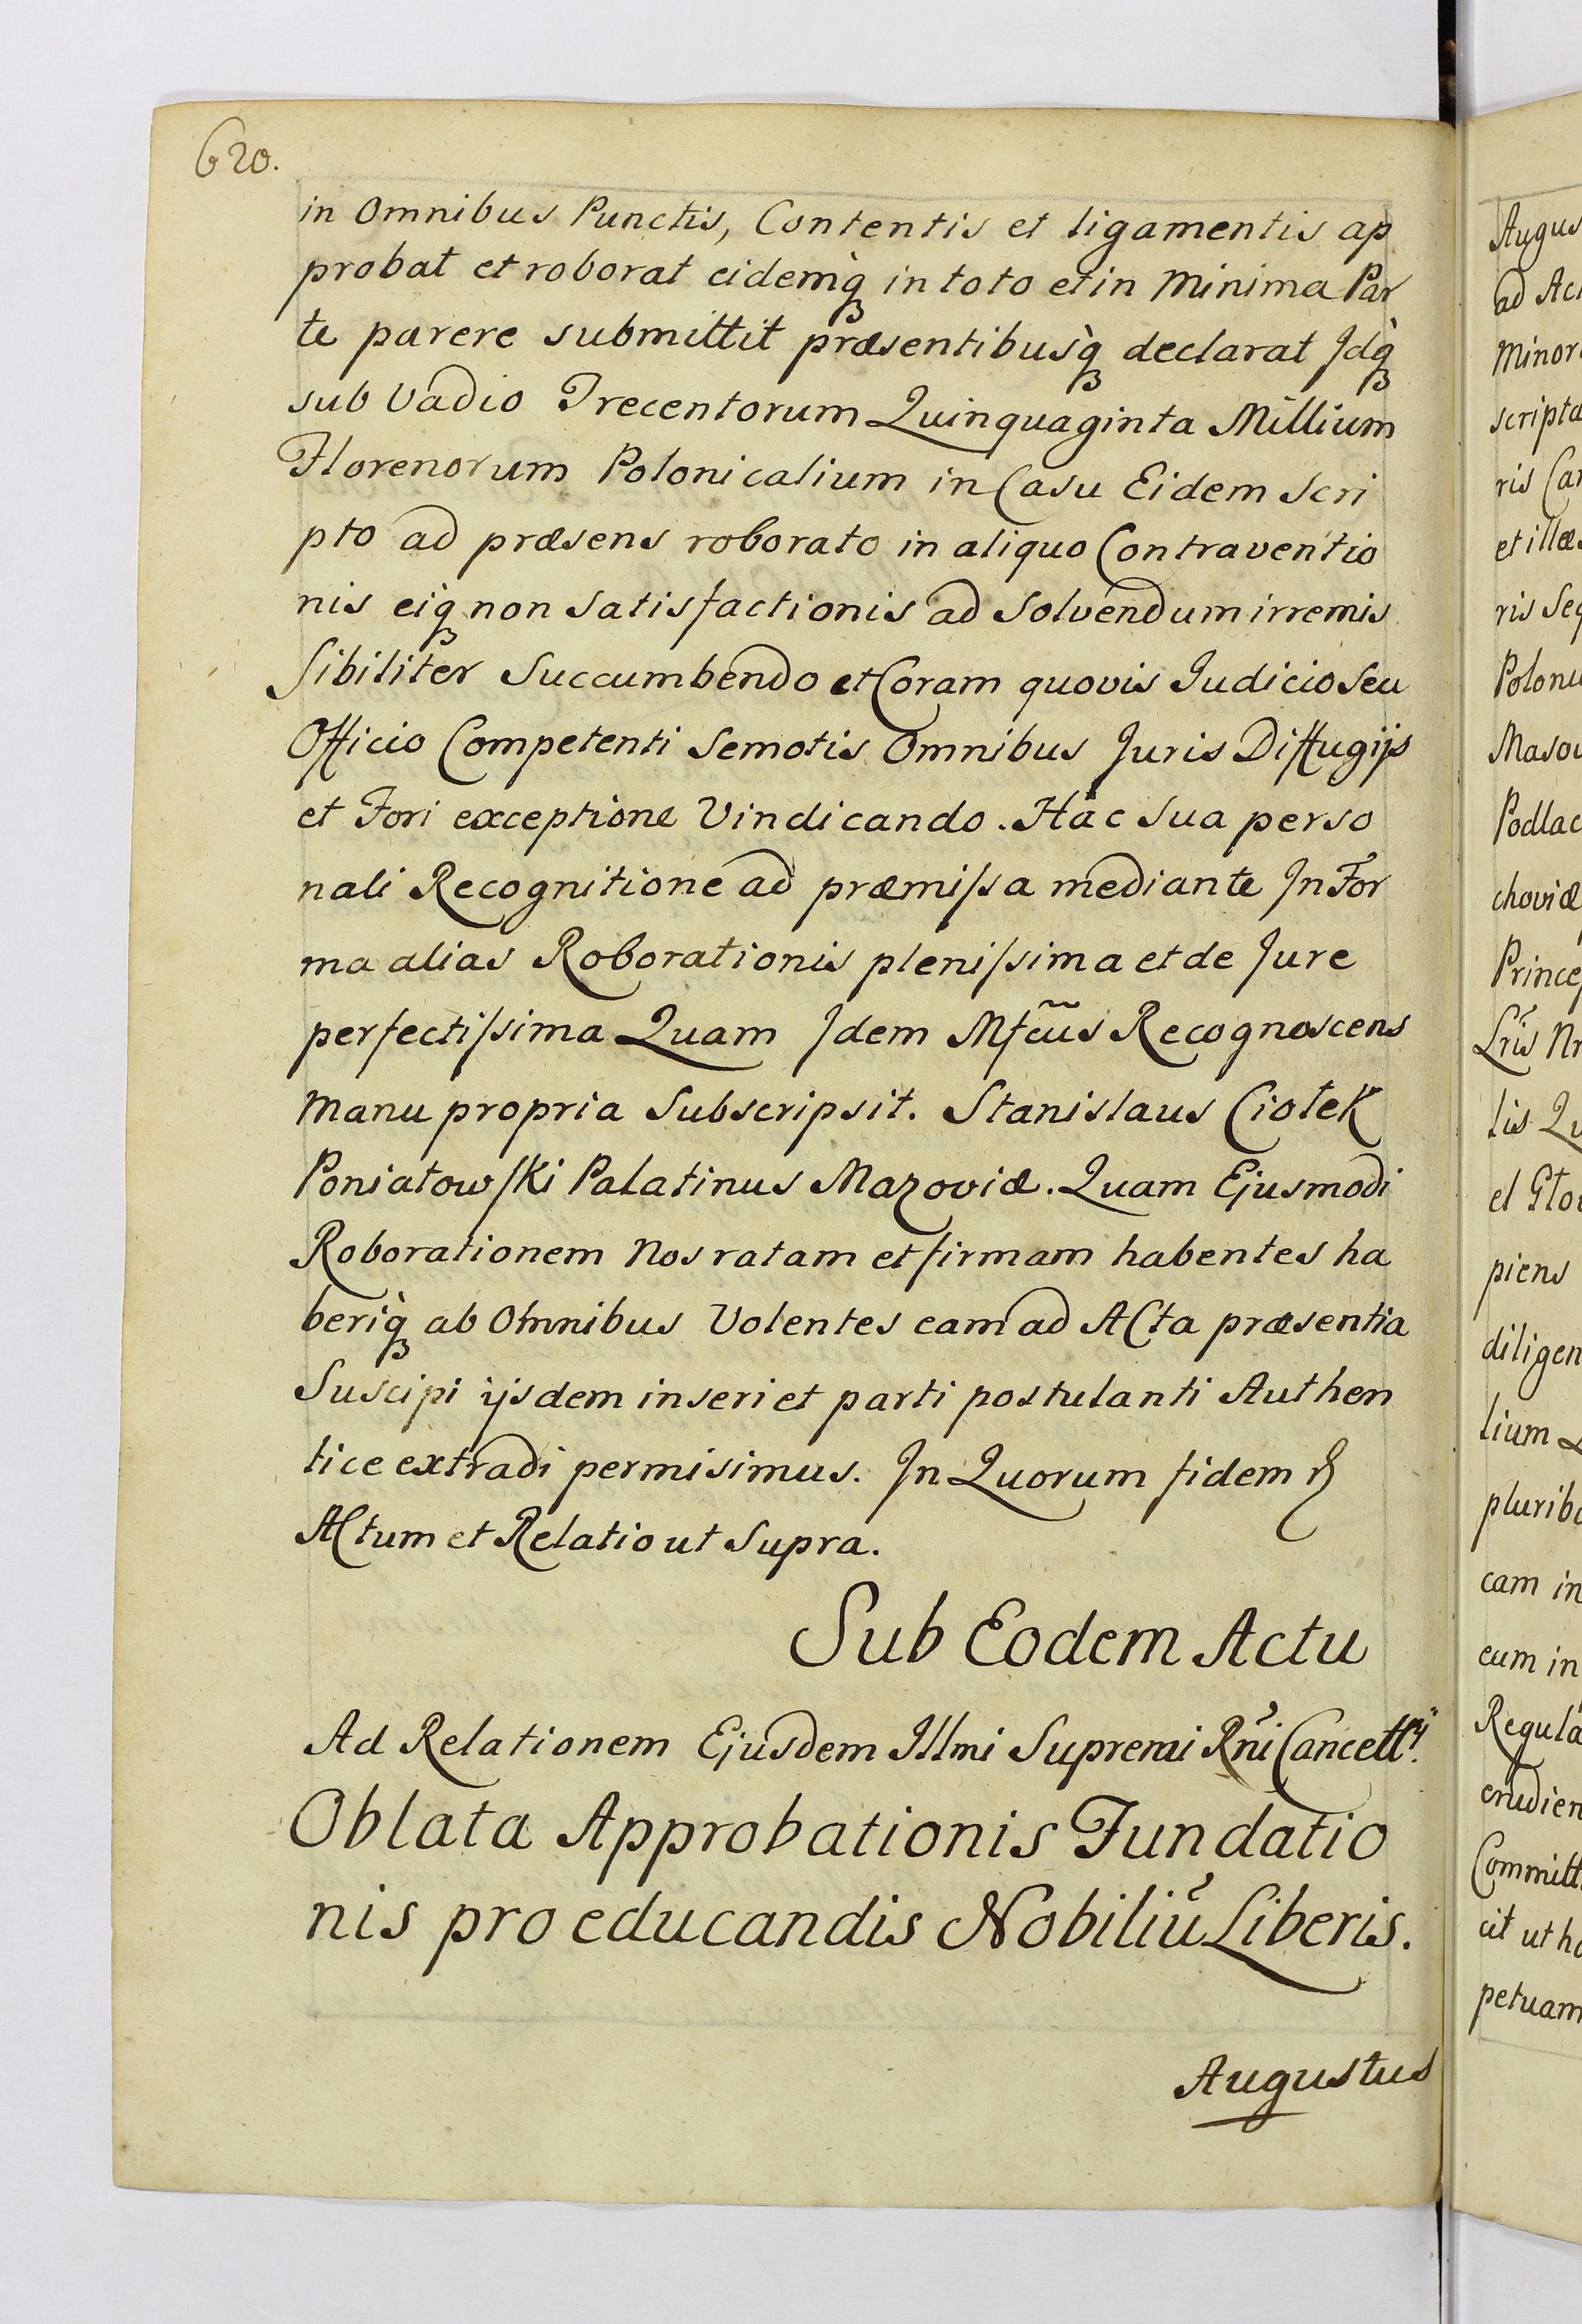 620.
in Omnibus Punctis, Contentis et ligamentis ap
probat et roborat eidemq́ in toto et in Minima Par
te parere submittit præsentibusq̀ declarat Jdq̀
sub Vadio Trecentorum Quinquaginta Millium
Florenorum Polonicalium in Casu Eidem Scri
pto ad præsens roborato in aliquo Contraventio
nis eiq non Satisfactionis ad Solvendum irremis
sibiliter Succumbendo et Coram quovis Judicio Seu
Officio Competenti Semotis Omnibus Juris Diffugijs
et Fori exceptione Vindicando. Hac Sua perso
nali Recognitione ad præmissa mediante Jn For
ma alias Roborationis plenissima et de Jure
perfectissima Quam Jdem Mfcus Recognoscens
Manu propria Subscripsit. Stanislaus Ciołek
Poniatowski Palatinus Mazoviæ. Quam Ejusmodi
Roborationem Nos ratam et firmam habentes ha
beriq̀ ab Omnibus Volentes eam ad Acta præsentia
Suscipi ijsdem inseri et parti postulanti Authen
tice extradi permisimus. Jn Quorum fidem
Actum et Relatio ut Supra.
Sub Eodem Actu
Ad Relationem Ejusdem Jllmi Supremi Rñi Cancellrÿ.
Oblata Approbationis Fundatio
nis pro educandis Nobiliũ Liberis.
Augustus
Augus
ad Ac
Minor
scripta
ris Ca
et illæ
ris Seq
Polon
Masov
Podlac
choviæ
Prince
Lris Nr
lis Qu
el Gło
piens
diligen
lium
pluribu
cam in
eum in
Regula
erudien
Committ
cit ut ho
petuam